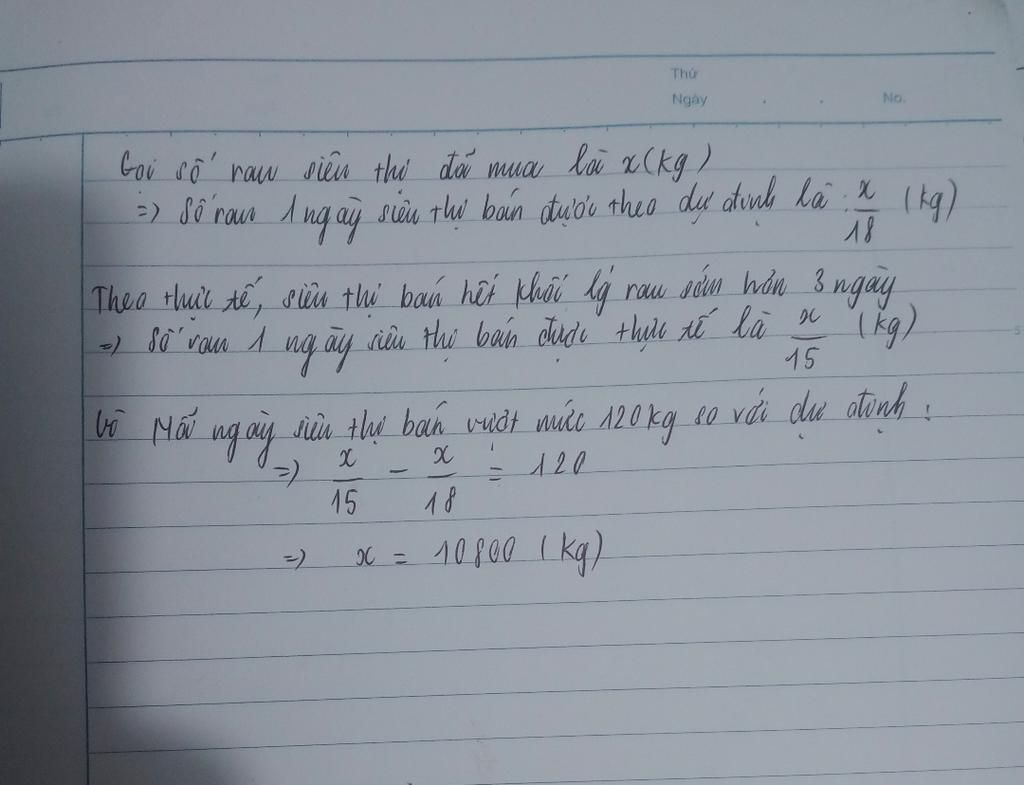 Thứ
Ngày . . No.
Gọi số rau siêu thị đã mua là x(kg)
=> Số rau 1 ngày siêu thị bán được theo dự định là : x/18 (kg)
Theo thực tế, siêu thị bán hết khối lg rau sớm hơn 3 ngày
=> Số rau 1 ngày siêu thị bán được thực tế là x/15 (kg)
Vì Mỗi ngày siêu thị bán vượt mức 120kg so với dự định :
=> x/15 - x/18 = 120
=> x = 10800 (kg)